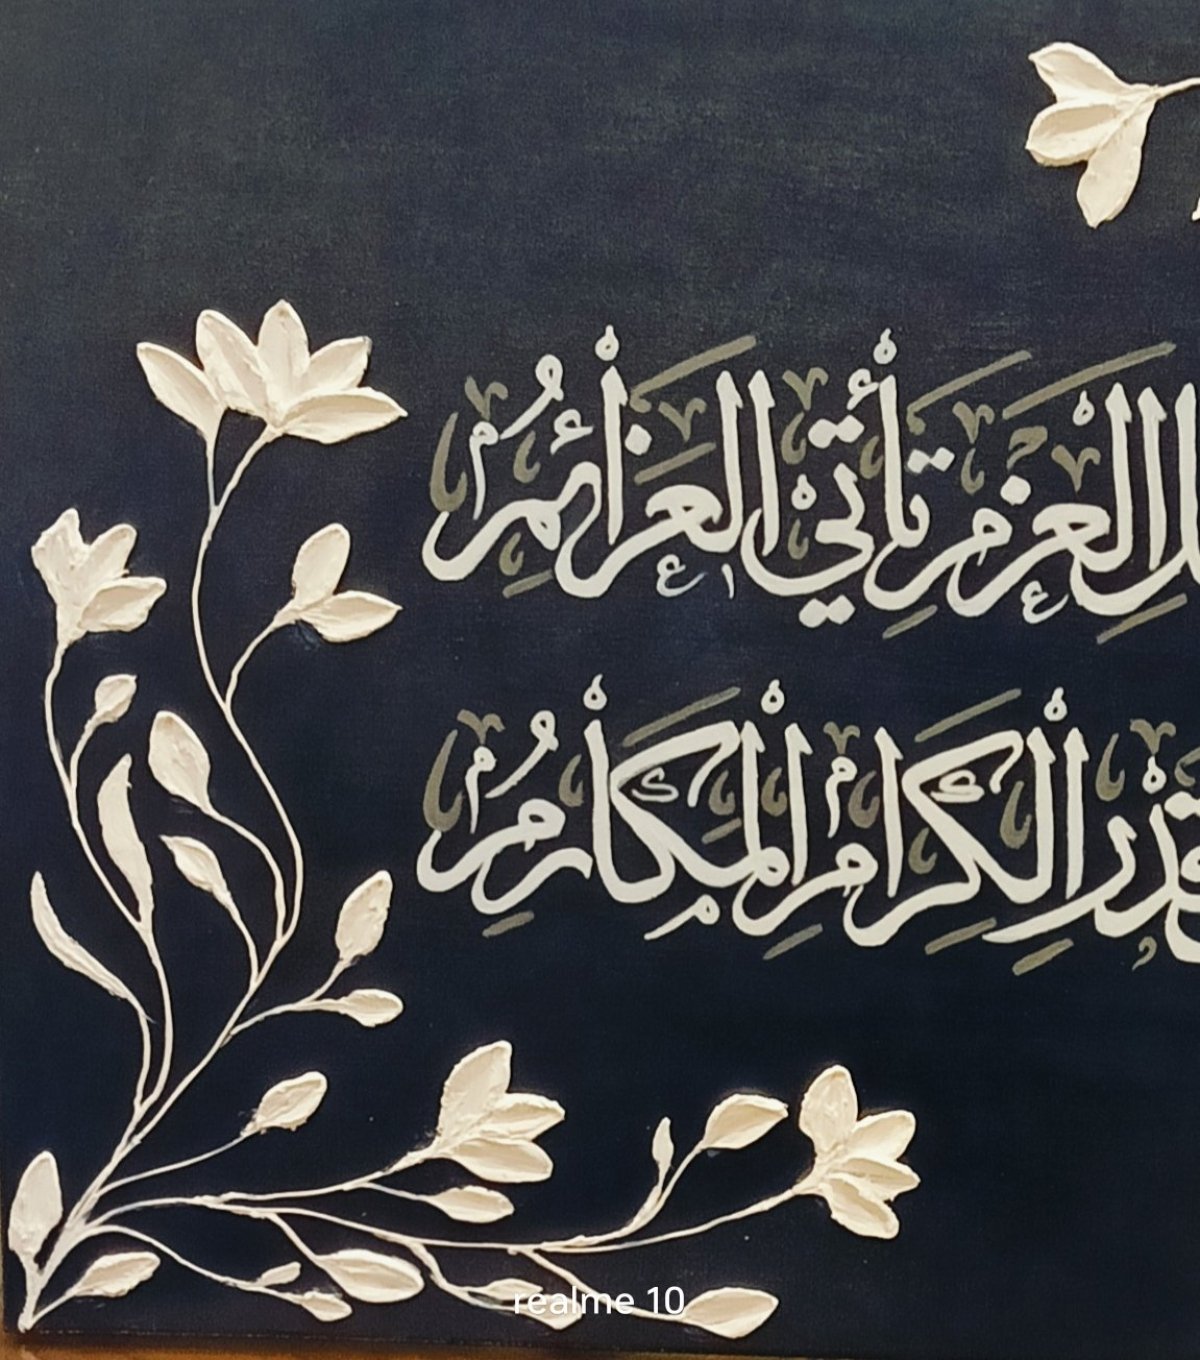 الْعَزْمِ تَأْتِيْ الْعَزَائِمُ
قَدْرِ الْكِرَامِ الْمَكَارِمُ
realme 10